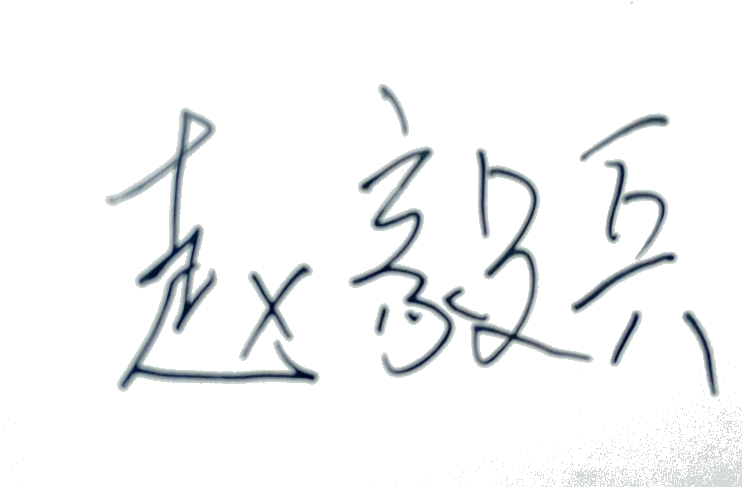 赵毅兵